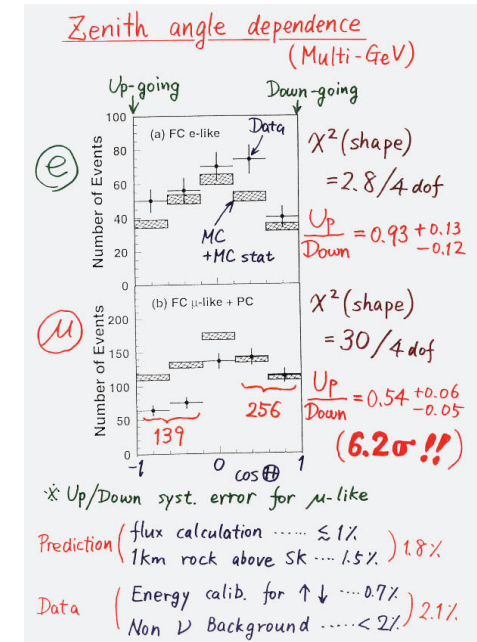 Zenith angle dependence
(Multi-GeV)
Up-going
Down-going
100
80
60
40
20
0
Number of Events
(a) FC e-like
Data
MC
+MC stat
e
χ² (shape)
= 2.8 / 4 dof
Up/Down = 0.93 +0.13 -0.12
200
150
100
50
0
Number of Events
(b) FC μ-like + PC
139
256
-1 0 1
cosΘ
μ
χ² (shape)
= 30 / 4 dof
Up/Down = 0.54 +0.06 -0.05
(6.2σ !!)
※ Up/Down syst. error for μ-like
Prediction ( flux calculation ...... ≲ 1%
1km rock above SK .... 1.5% ) 1.8%
Data ( Energy calib. for ↑ ↓ .... 0.7%
Non ν Background ...... < 2% ) 2.1%